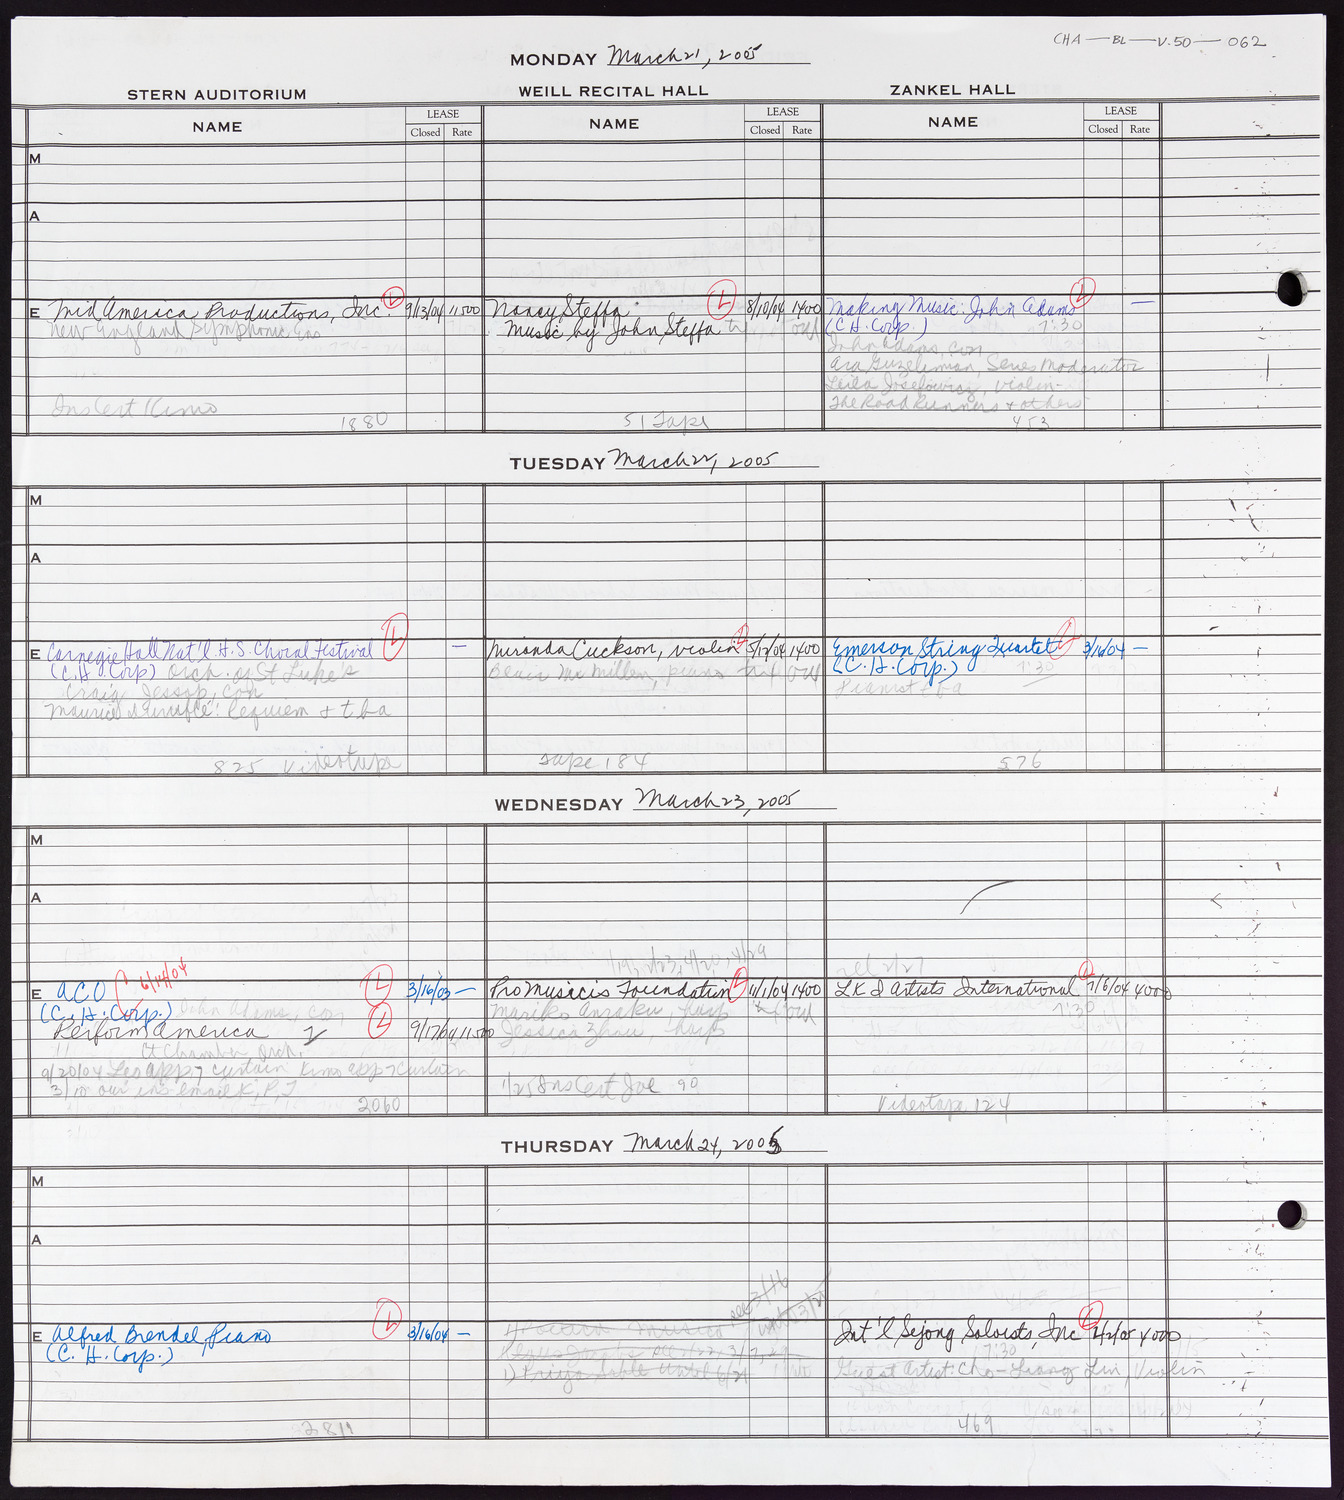 CHA — BL — V.50 — 062
MONDAY March 21, 2005
STERN AUDITORIUM WEILL RECITAL HALL ZANKEL HALL
NAME LEASE Closed Rate NAME LEASE Closed Rate NAME LEASE Closed Rate
M
A
E Mid America Productions, Inc. L 9/13/04 11,500
New England Symphonic Ens
Ins Cert Kimo
1880
Nancy Steffa L 8/10/04 1400
Music by John Steffa
51 Tape
Making Music: John Adams L —
(C.H. Corp.) 7:30
John Adams, con
Ara Guzelimian, Series Moderator
Leila Josefowicz, violin
The Road Runners + others
453
TUESDAY March 22, 2005
M
A
E Carnegie Hall Nat'l H.S. Choral Festival L —
(C.H. Corp) Orch. of St Luke's
Craig Jessop, con
Maurice Durufle: Requiem + tba
825 Videotape
Miranda Cuckson, violin L 5/12/04 1400
Blair McMillen, piano
Tape 184
Emerson String Quartet L 3/16/04 —
(C.H. Corp.) 7:30
Pianist tba
576
WEDNESDAY March 23, 2005
M
A
6/14/04
E ACO L 3/16/03 —
(C.H. Corp.) John Adams, con
Perform America L 9/17/04 11,500
Ct Chamber Orch.
9/20/04 Leo app 7 curtain Kimo app 7 curtain
3/18 our ins email K, P, J
2060
1/19, 2/23, 4/20, 4/29
Pro Musicis Foundation L 11/1/04 1400
Mariko Anraku, harp
Jessica Zhou, harp
1/25 Ins Cert Joe 90
rel 2/27
LK I Artists International L 7/6/04 4000
7:30
Videotape 124
THURSDAY March 24, 2005
M
A
E Alfred Brendel, Piano L 3/16/04 —
(C. H. Corp.)
2811
rel 3/16
Int'l Sejong Soloists, Inc L 2/2/05 4000
7:30
Guest Artist: Cho-Liang Lin, Violin
469